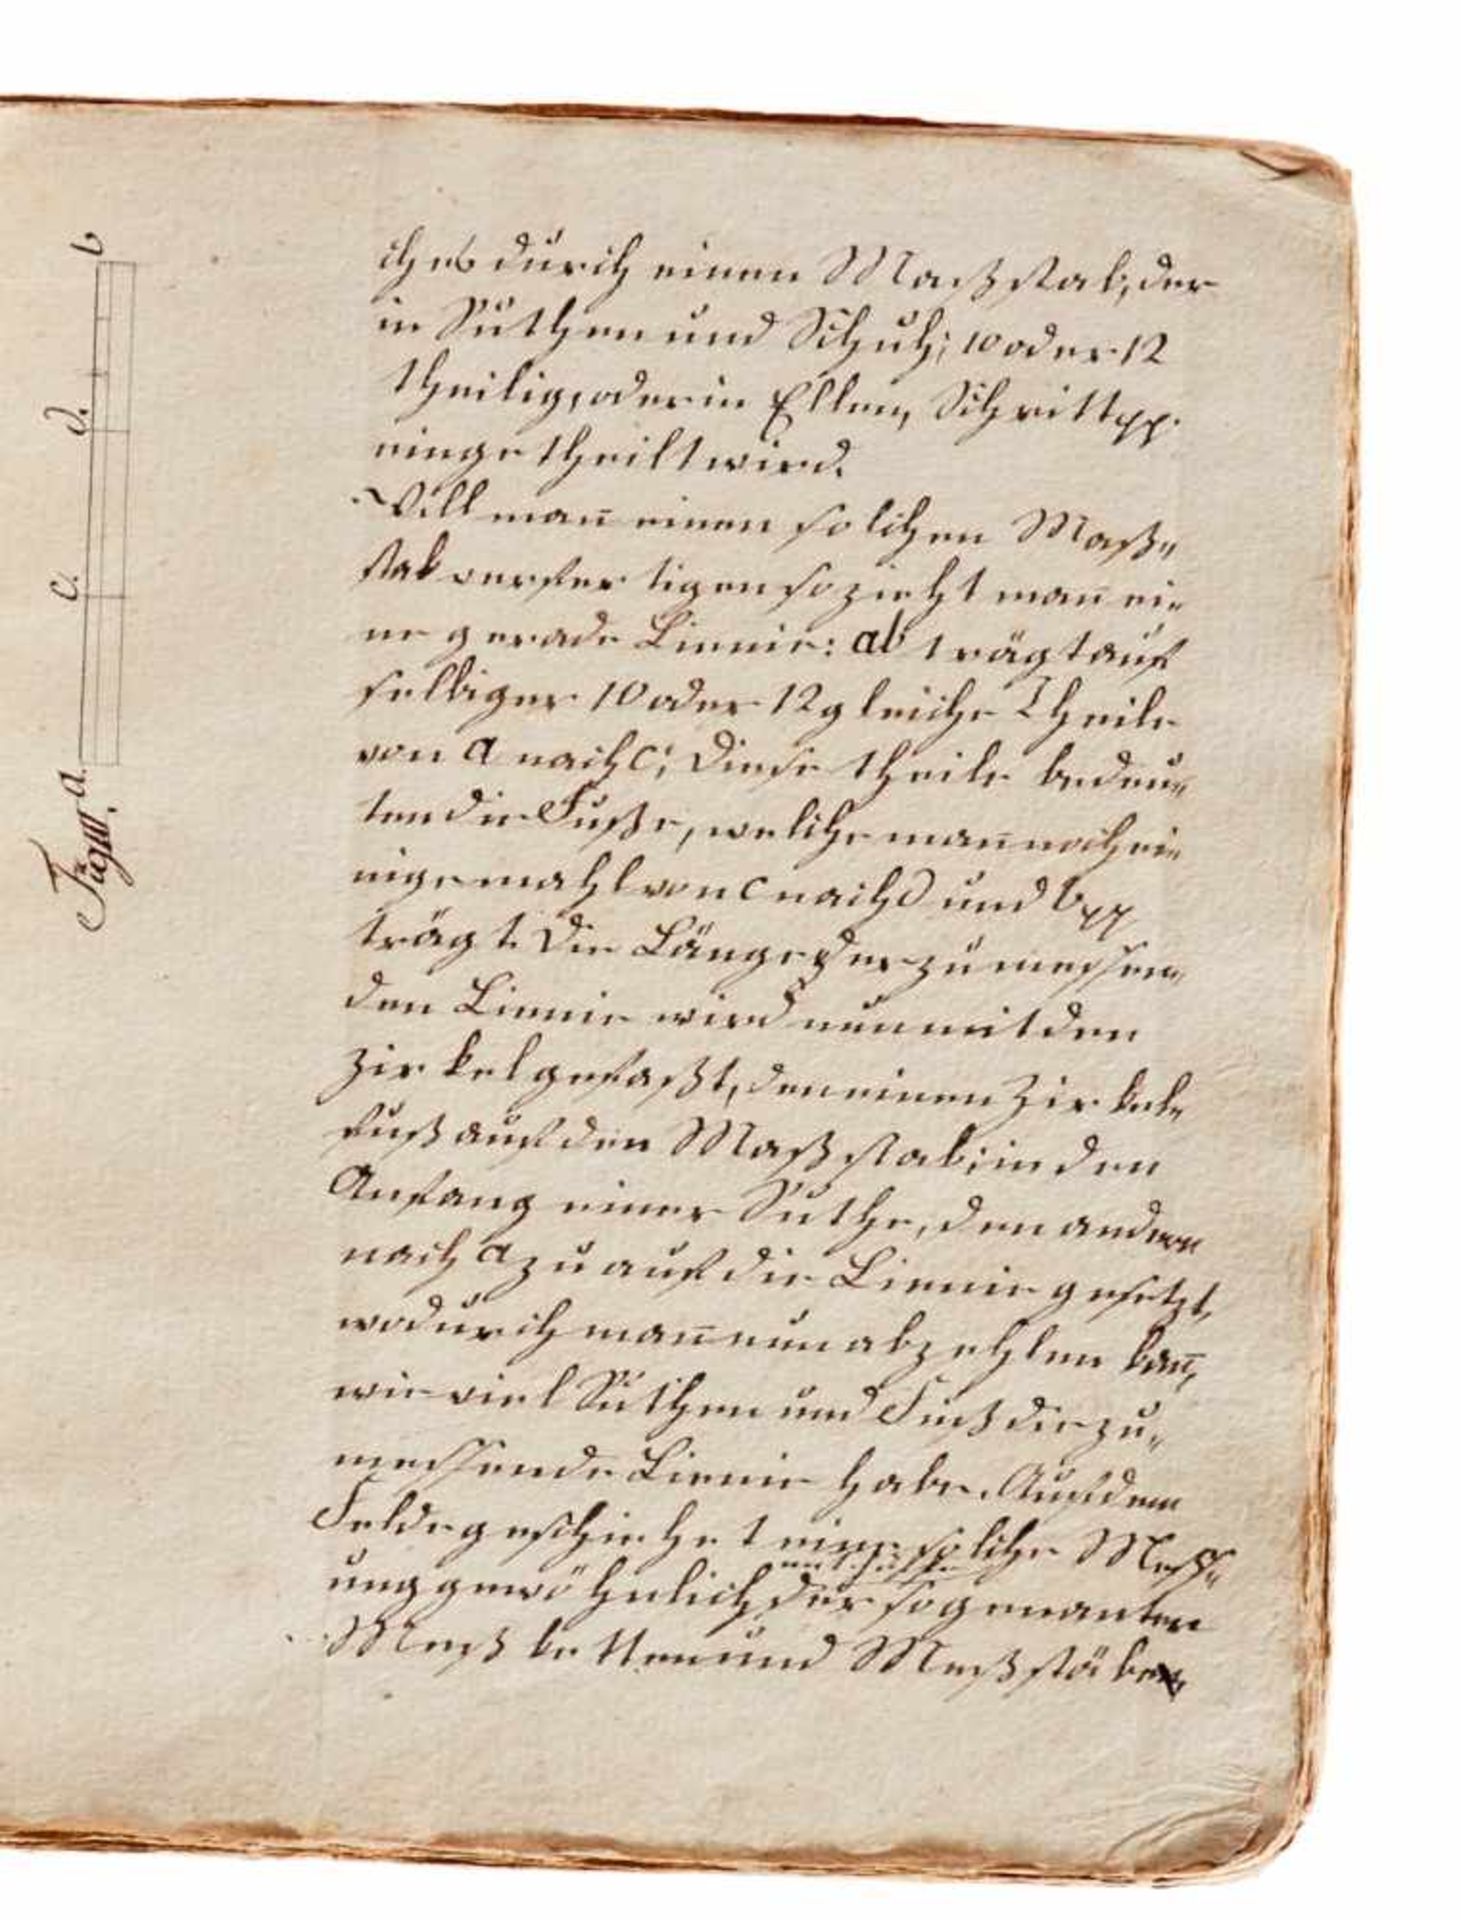 ich es durch einen Maßstab, der
in Ruthen und Schuh; 10 oder 12
theilig, oder in Ellen, Schritt pp.
eingetheilt wird.
Will man̄ einen solchen Maß„
stab verfertigen so zieht man̄ ei„
ne gerade Linnie: ab trägt auf
selbiger 10 oder 12 gleiche Theile
von a nach c; Diese theile bedeu„
ten die Fuße, welche man̄ noch ei„
nige mahl von c nach d und b pp
trägt. Die Länge der zu messen„
den Linnie wird nun mit den
Zirkel gefaßt, den einen Zirkel„
fuß auf den Maßstab; in den
Anfang einer Ruthe, den andern
nach a zu auf die Linnie gesetzt,
wodurch man̄ nun abzehlen kan̄,
wie viel Ruthen und Fuß die zu„
messende Linnie habe. Auf dem
Felde geschiehet eine solche Mess„
ung gewöhnlich der sogenanten
Meßketten und Meßstäbe
Figur III.
a.
c.
d.
b